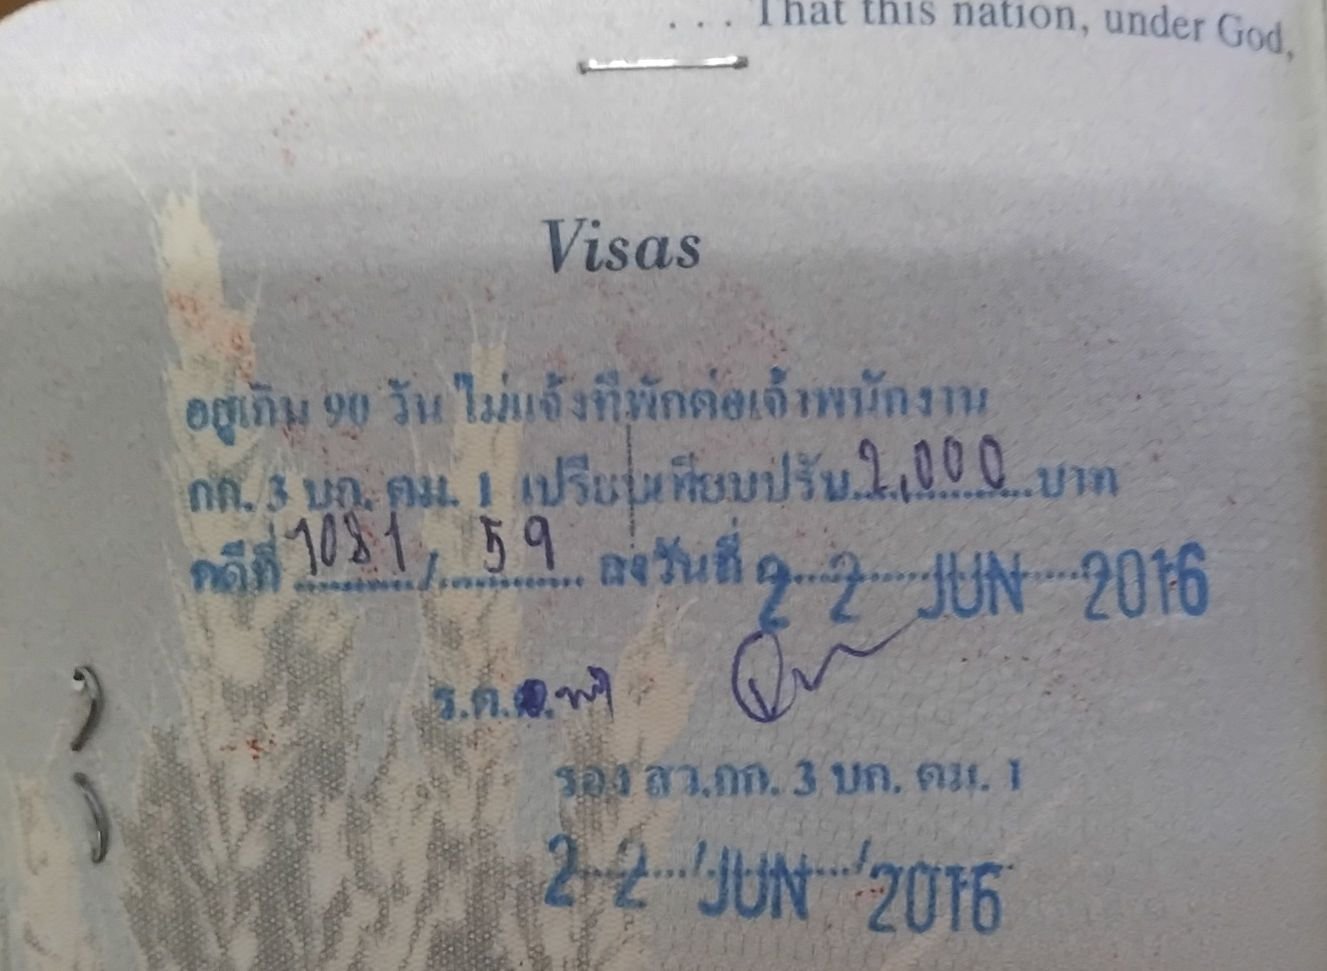 ... That this nation, under God,
Visas
อยู่เกิน 90 วัน ไม่แจ้งที่พักต่อเจ้าพนักงาน
กก. 3 บก. ตม. 1 เปรียบเทียบปรับ 2,000 บาท
คดีที่ 1081 / 59 ลงวันที่ 22 JUN 2016
ร.ต.อ.
รอง สว.กก. 3 บก. ตม. 1
22 / JUN / 2016